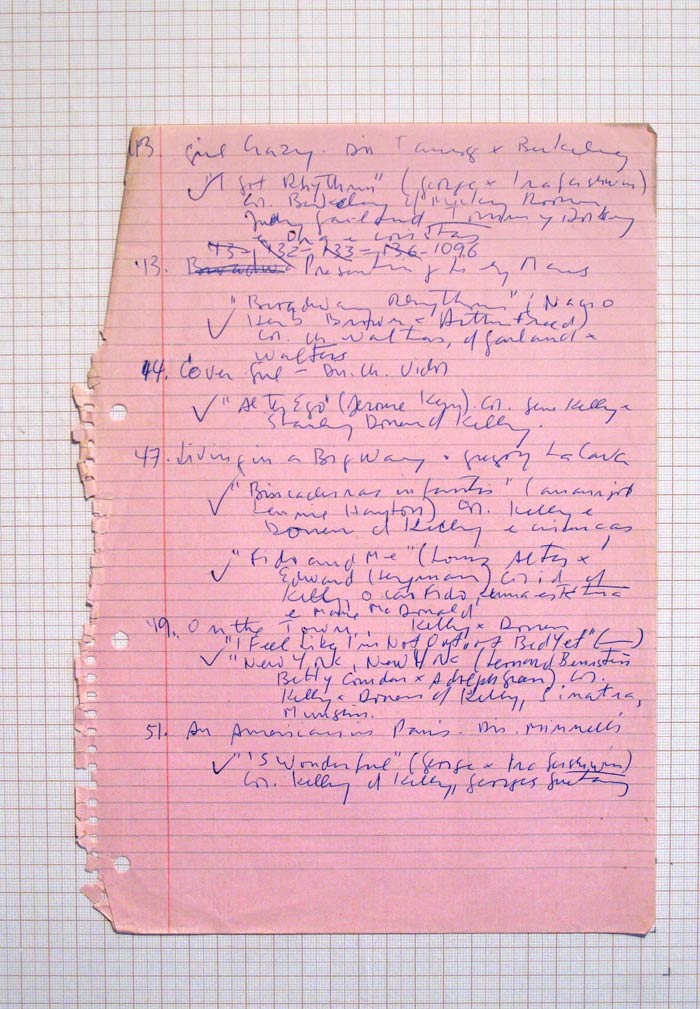 43. Girl Crazy. Dir Taurog x Berkeley
"I got Rhythm" (George x Ira Gershwin)
Cor. Berkeley d Mickey Rooney
Judy Garland Tommy Dorsey
43 = 132 = 133 = 136 - 1096
43. Presenting Lily Mars
"Broadway Rhythm" (Nacio
Herb Brown x Arthur Freed)
Cor. Ch Walters, d Garland x
Walters
44. Cover Girl - Dir. Ch. Vidor
"Alter Ego" (Jerome Kern). Cor. Gene Kelly x
Stanley Donen d Kelly.
47. Living in a Big Way. Gregory La Cava
infantis"
Lennie Hayton) Cor. Kelly e
Donen d Kelly e
"Fido and Me" (Louis Alter x
Edward Heyman) Cor id d
Kelly, o cão Fido,
e Marie McDonald
49. On the Town. Kelly x Donen
"I Feel Like I'm Not Out of Bed Yet" (—)
"New York, New York (Leonard Bernstein
Betty Comden x Adolph Green). Cor.
Kelly x Donen d Kelly, Sinatra,
Munshin.
51. An American in Paris. Dir. Minnelli
"'S Wonderful" (George x Ira Gershwin)
Cor. Kelly d Kelly, Georges Guetary